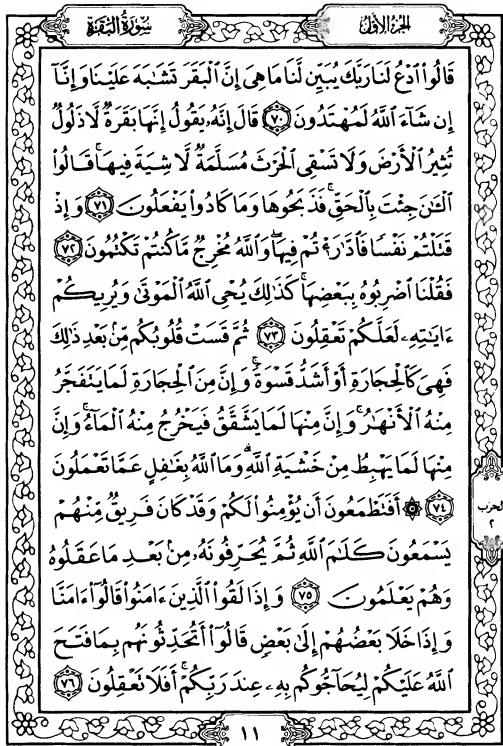 سورة البقرة
الجزء الأول
قَالُوا۟ ٱدْعُ لَنَا رَبَّكَ يُبَيِّن لَّنَا مَا هِىَ إِنَّ ٱلْبَقَرَ تَشَٰبَهَ عَلَيْنَا وَإِنَّآ
إِن شَآءَ ٱللَّهُ لَمُهْتَدُونَ ٧٠ قَالَ إِنَّهُۥ يَقُولُ إِنَّهَا بَقَرَةٌ لَّا ذَلُولٌ
تُثِيرُ ٱلْأَرْضَ وَلَا تَسْقِى ٱلْحَرْثَ مُسَلَّمَةٌ لَّا شِيَةَ فِيهَا ۚ قَالُوا۟
ٱلْـَٰٔنَ جِئْتَ بِٱلْحَقِّ ۚ فَذَبَحُوهَا وَمَا كَادُوا۟ يَفْعَلُونَ ٧١ وَإِذْ
قَتَلْتُمْ نَفْسًا فَٱدَّٰرَْٰٔتُمْ فِيهَا ۖ وَٱللَّهُ مُخْرِجٌ مَّا كُنتُمْ تَكْتُمُونَ ٧٢
فَقُلْنَا ٱضْرِبُوهُ بِبَعْضِهَا ۚ كَذَٰلِكَ يُحْىِ ٱللَّهُ ٱلْمَوْتَىٰ وَيُرِيكُمْ
ءَايَٰتِهِۦ لَعَلَّكُمْ تَعْقِلُونَ ٧٣ ثُمَّ قَسَتْ قُلُوبُكُم مِّنۢ بَعْدِ ذَٰلِكَ
فَهِىَ كَٱلْحِجَارَةِ أَوْ أَشَدُّ قَسْوَةً ۚ وَإِنَّ مِنَ ٱلْحِجَارَةِ لَمَا يَتَفَجَّرُ
مِنْهُ ٱلْأَنْهَٰرُ ۚ وَإِنَّ مِنْهَا لَمَا يَشَّقَّقُ فَيَخْرُجُ مِنْهُ ٱلْمَآءُ ۚ وَإِنَّ
مِنْهَا لَمَا يَهْبِطُ مِنْ خَشْيَةِ ٱللَّهِ ۗ وَمَا ٱللَّهُ بِغَٰفِلٍ عَمَّا تَعْمَلُونَ
٧٤ ۞ أَفَتَطْمَعُونَ أَن يُؤْمِنُوا۟ لَكُمْ وَقَدْ كَانَ فَرِيقٌ مِّنْهُمْ
يَسْمَعُونَ كَلَٰمَ ٱللَّهِ ثُمَّ يُحَرِّفُونَهُۥ مِنۢ بَعْدِ مَا عَقَلُوهُ
وَهُمْ يَعْلَمُونَ ٧٥ وَإِذَا لَقُوا۟ ٱلَّذِينَ ءَامَنُوا۟ قَالُوٓا۟ ءَامَنَّا
وَإِذَا خَلَا بَعْضُهُمْ إِلَىٰ بَعْضٍ قَالُوٓا۟ أَتُحَدِّثُونَهُم بِمَا فَتَحَ
ٱللَّهُ عَلَيْكُمْ لِيُحَآجُّوكُم بِهِۦ عِندَ رَبِّكُمْ ۚ أَفَلَا تَعْقِلُونَ ٧٦
الحزب
٢
١١